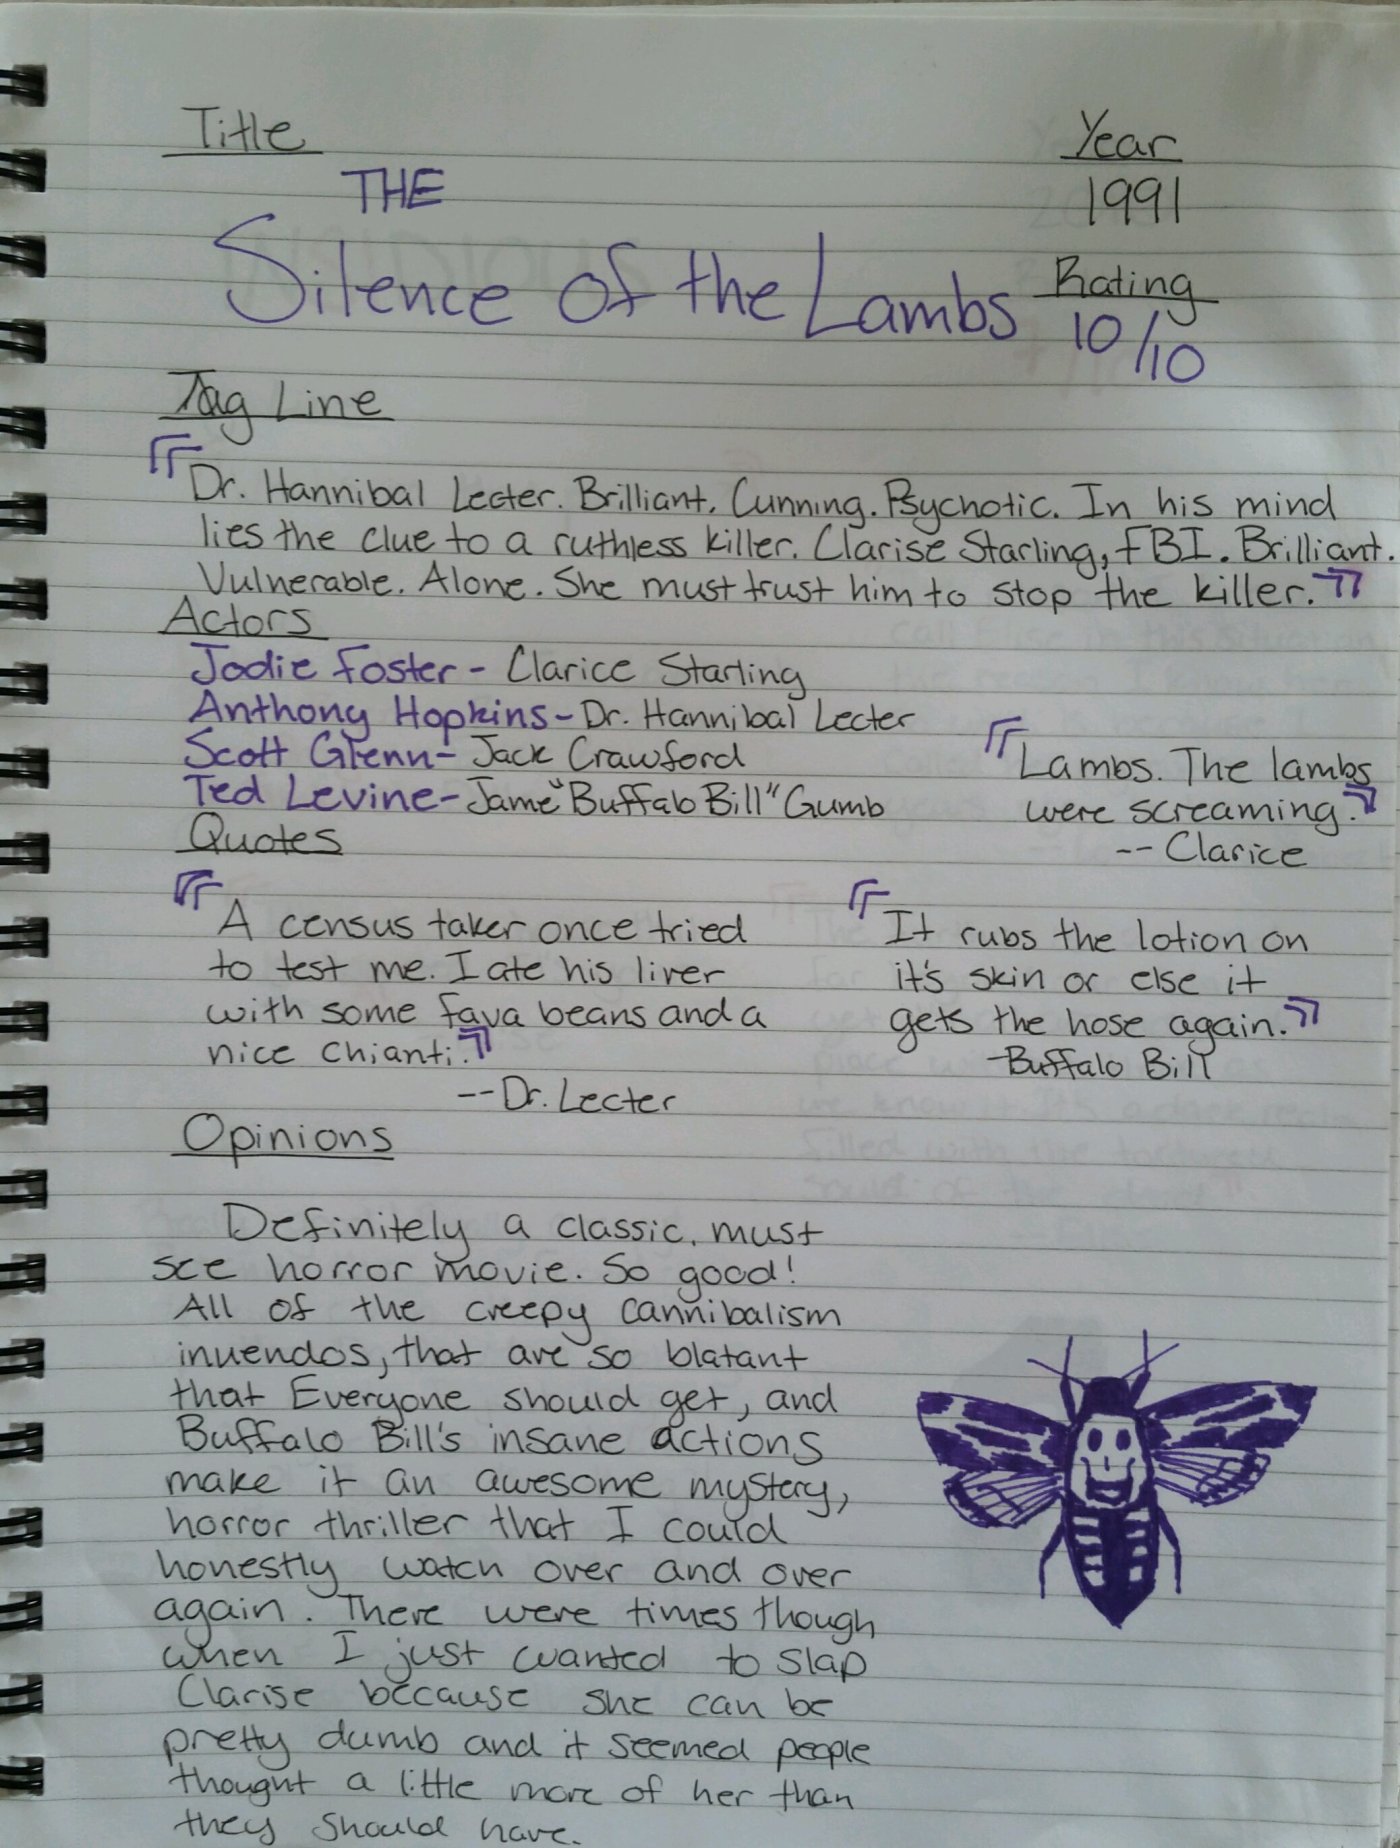 Title
Year
THE
1991
Silence of the Lambs
Rating
10/10
Tag Line
"Dr. Hannibal Lecter. Brilliant. Cunning. Psychotic. In his mind
lies the clue to a ruthless killer. Clarise Starling, FBI. Brilliant.
Vulnerable. Alone. She must trust him to stop the killer."
Actors
Jodie Foster - Clarice Starling
Anthony Hopkins - Dr. Hannibal Lecter
Scott Glenn - Jack Crawford
Ted Levine - Jame "Buffalo Bill" Gumb
"Lambs. The lambs
were screaming."
-- Clarice
Quotes
"A census taker once tried
to test me. I ate his liver
with some fava beans and a
nice chianti."
-- Dr. Lecter
"It rubs the lotion on
it's skin or else it
gets the hose again."
-Buffalo Bill
Opinions
Definitely a classic, must
see horror movie. So good!
All of the creepy cannibalism
inuendos, that are so blatant
that Everyone should get, and
Buffalo Bill's insane actions
make it an awesome mystery,
horror thriller that I could
honestly watch over and over
again. There were times though
when I just wanted to slap
Clarise because she can be
pretty dumb and it seemed people
thought a little more of her than
they should have.